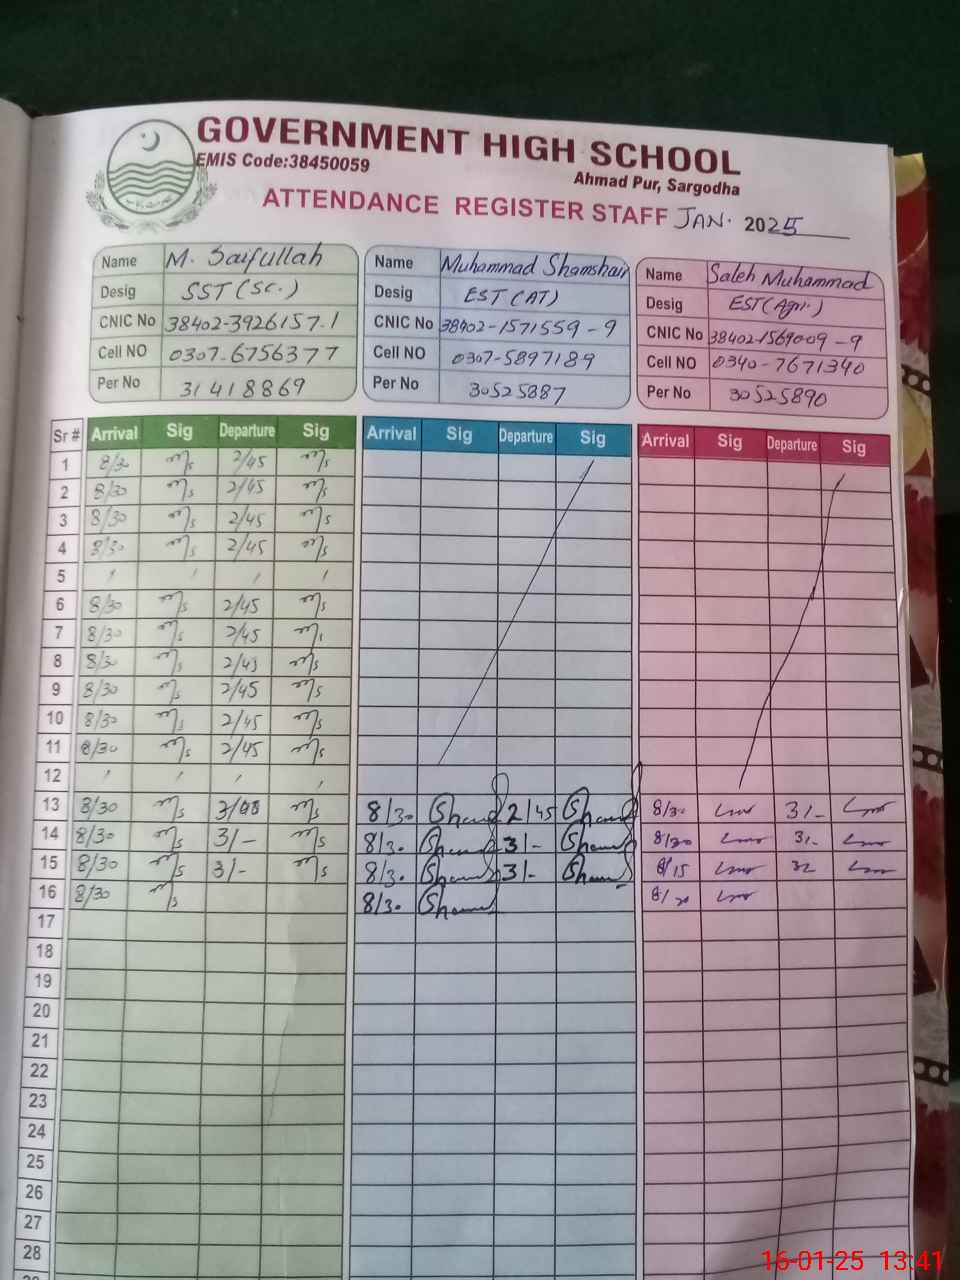 GOVERNMENT HIGH SCHOOL
EMIS Code:38450059
Ahmad Pur, Sargodha
ATTENDANCE REGISTER STAFF JAN. 2025
Name M. Saifullah
Desig SST (SC.)
CNIC No 38402-3926157-1
Cell NO 0307-6756377
Per No 31418869
Name Muhammad Shamshair
Desig EST (AT)
CNIC No 38402-1571559-9
Cell NO 0307-5897189
Per No 30525887
Name Saleh Muhammad
Desig EST (Agri.)
CNIC No 38402-1569009-9
Cell NO 0340-7671340
Per No 30525890
Sr # Arrival Sig Departure Sig Arrival Sig Departure Sig Arrival Sig Departure Sig
1 8/30 Ms 2/45 Ms
2 8/30 Ms 2/45 Ms
3 8/30 Ms 2/45 Ms
4 8/30 Ms 2/45 Ms
5
6 8/30 Ms 2/45 Ms
7 8/30 Ms 2/45 Ms
8 8/30 Ms 2/45 Ms
9 8/30 Ms 2/45 Ms
10 8/30 Ms 2/45 Ms
11 8/30 Ms 2/45 Ms
12
13 8/30 Ms Ms 8/30 2/45 8/30 3/-
14 8/30 Ms 3/- Ms 8/30 3/- 8/20 3/-
15 8/30 Ms 3/- Ms 8/30 3/- 8/15
16 8/30 Ms 8/30 8/20
17
18
19
20
21
22
23
24
25
26
27
28
16-01-25 13:41